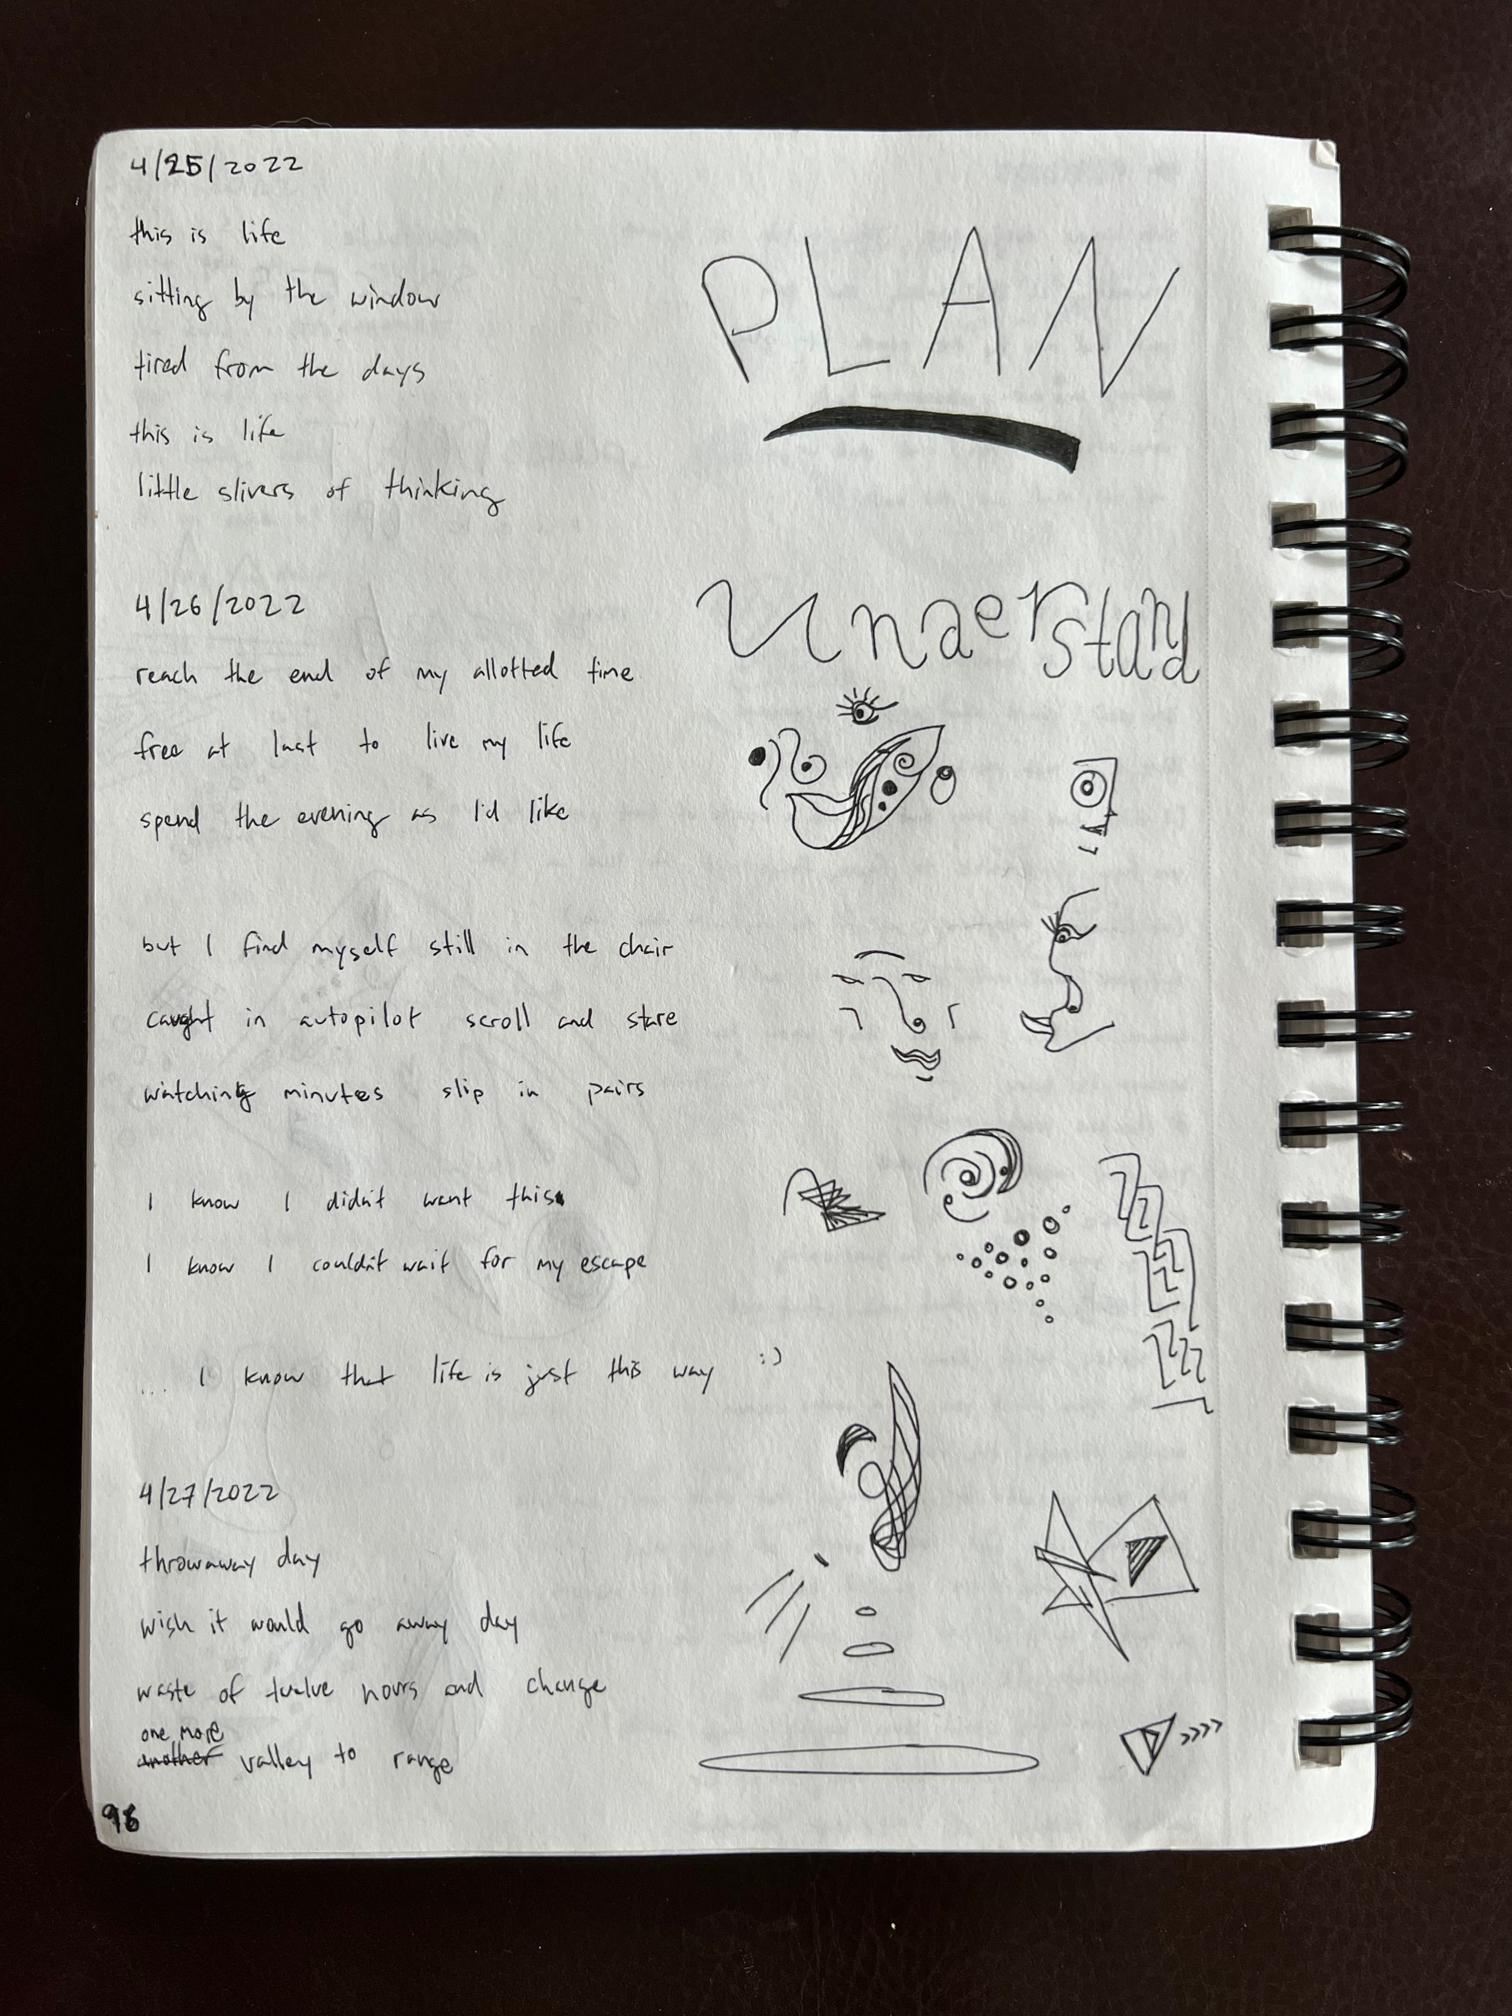 4/25/2022
this is life
sitting by the window
tired from the days
this is life
little slivers of thinking
4/26/2022
reach the end of my allotted time
free at last to live my life
spend the evening as I'd like
but I find myself still in the chair
caught in autopilot scroll and stare
watching minutes slip in pairs
I know I didn't want this
I know I couldn't wait for my escape
... I know that life is just this way :)
4/27/2022
throwaway day
wish it would go away day
waste of twelve hours and change
one more
another valley to range
PLAN
Understand